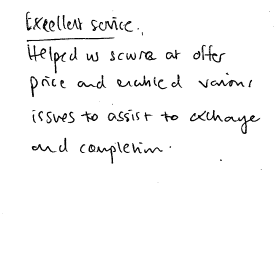 Excellent service.
Helped us secure at offer
price and enabled various
issues to assist to exchange
and completion.